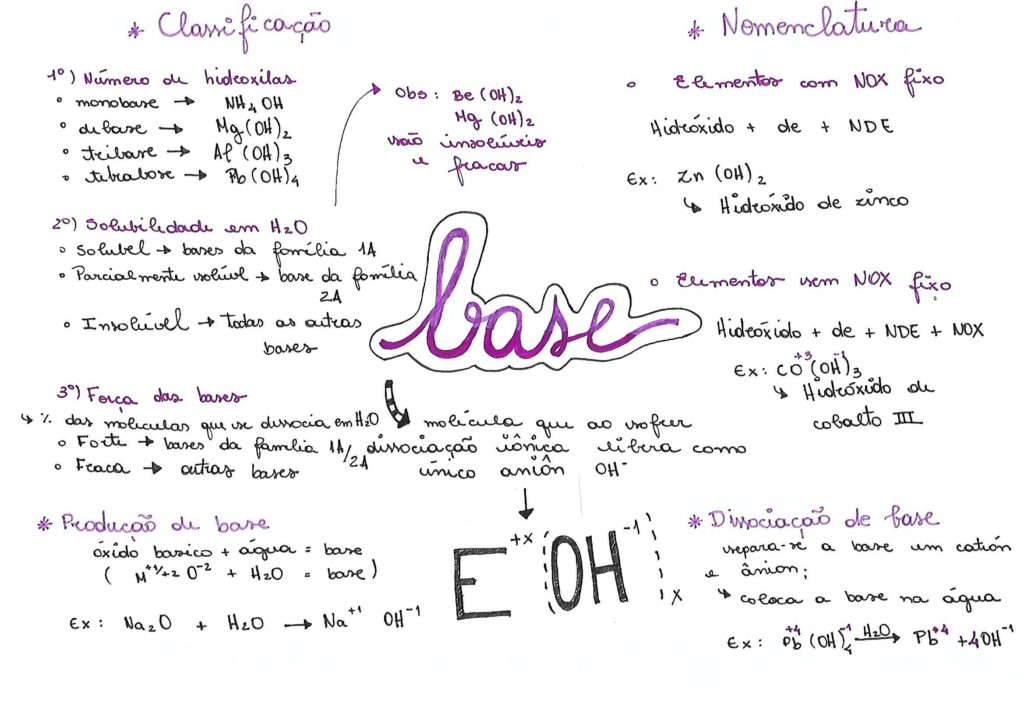 * Classificação
1º) Número de hidroxilas
° monobase → NH4OH
° dibase → Mg(OH)2
° tribase → Al(OH)3
° tetrabase → Pb(OH)4
Obs: Be(OH)2
Mg(OH)2
são insolúveis
e fracas
2º) Solubilidade em H2O
° Solubel → bases da família 1A
° Parcialmente solúvel → base da família
2A
° Insolúvel → todas as outras
bases
3º) Força das bases
↳ % das moleculas que se dissocia em H2O
° Forte → bases da família 1A/2A
° Fraca → outras bases
base
molécula que ao sofrer
dissociação iônica libera como
único aniôn OH-
E+x (OH-1)x
* Produção de base
óxido basico + água = base
(M+1/+2 O-2 + H2O = base)
Ex: Na2O + H2O → Na+1 OH-1
* Nomenclatura
° Elementos com NOX fixo
Hidróxido + de + NDE
Ex: Zn(OH)2
↳ Hidróxido de zinco
° Elementos sem NOX fixo
Hidróxido + de + NDE + NOX
Ex: CO+3(OH-1)3
↳ Hidróxido de
cobalto III
* Dissociação de base
separa-se a base um cation
e ânion;
↳ coloca a base na água
Ex: Pb+4(OH)-14 H2O→ Pb+4 + 4OH-1